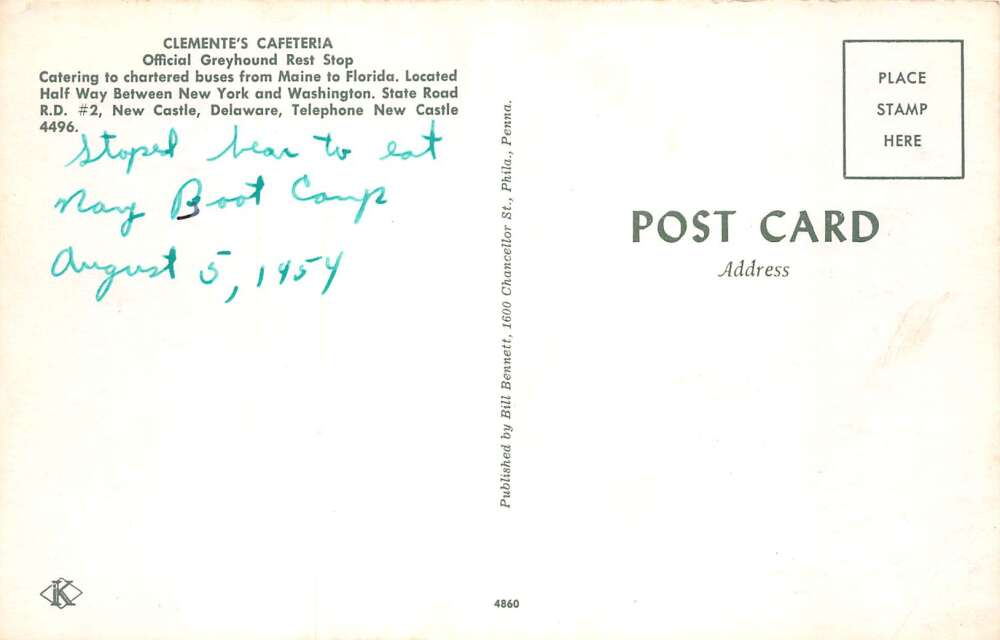 CLEMENTE'S CAFETERIA
Official Greyhound Rest Stop
Catering to chartered buses from Maine to Florida. Located
Half Way Between New York and Washington. State Road
R.D. #2, New Castle, Delaware, Telephone New Castle
4496.
Stoped hear to eat
Navy Boot Camp
August 5, 1954
Published by Bill Bennett, 1600 Chancellor St., Phila., Penna.
PLACE
STAMP
HERE
POST CARD
Address
K
4860